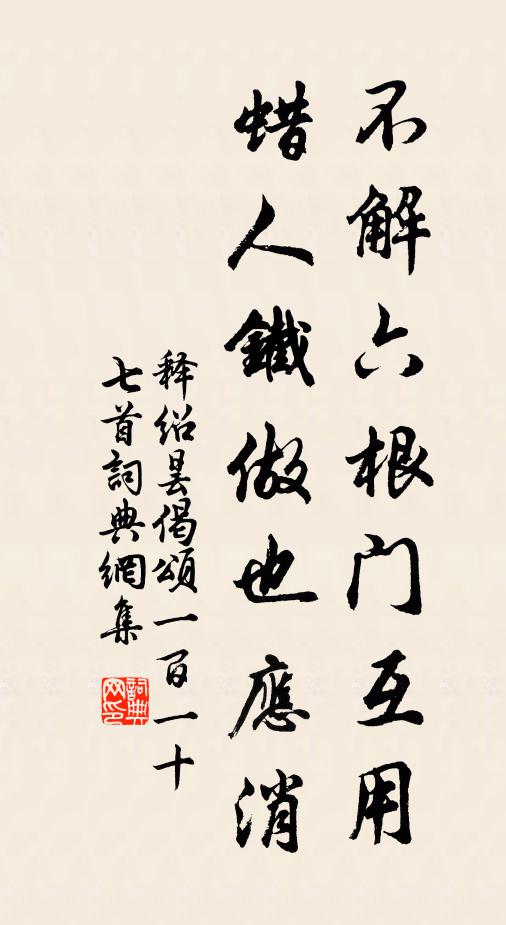 不解六根门互用
蜡人鐵做也應消
释绍昙偈頌一百一十
七首詞典網集
詞典网印